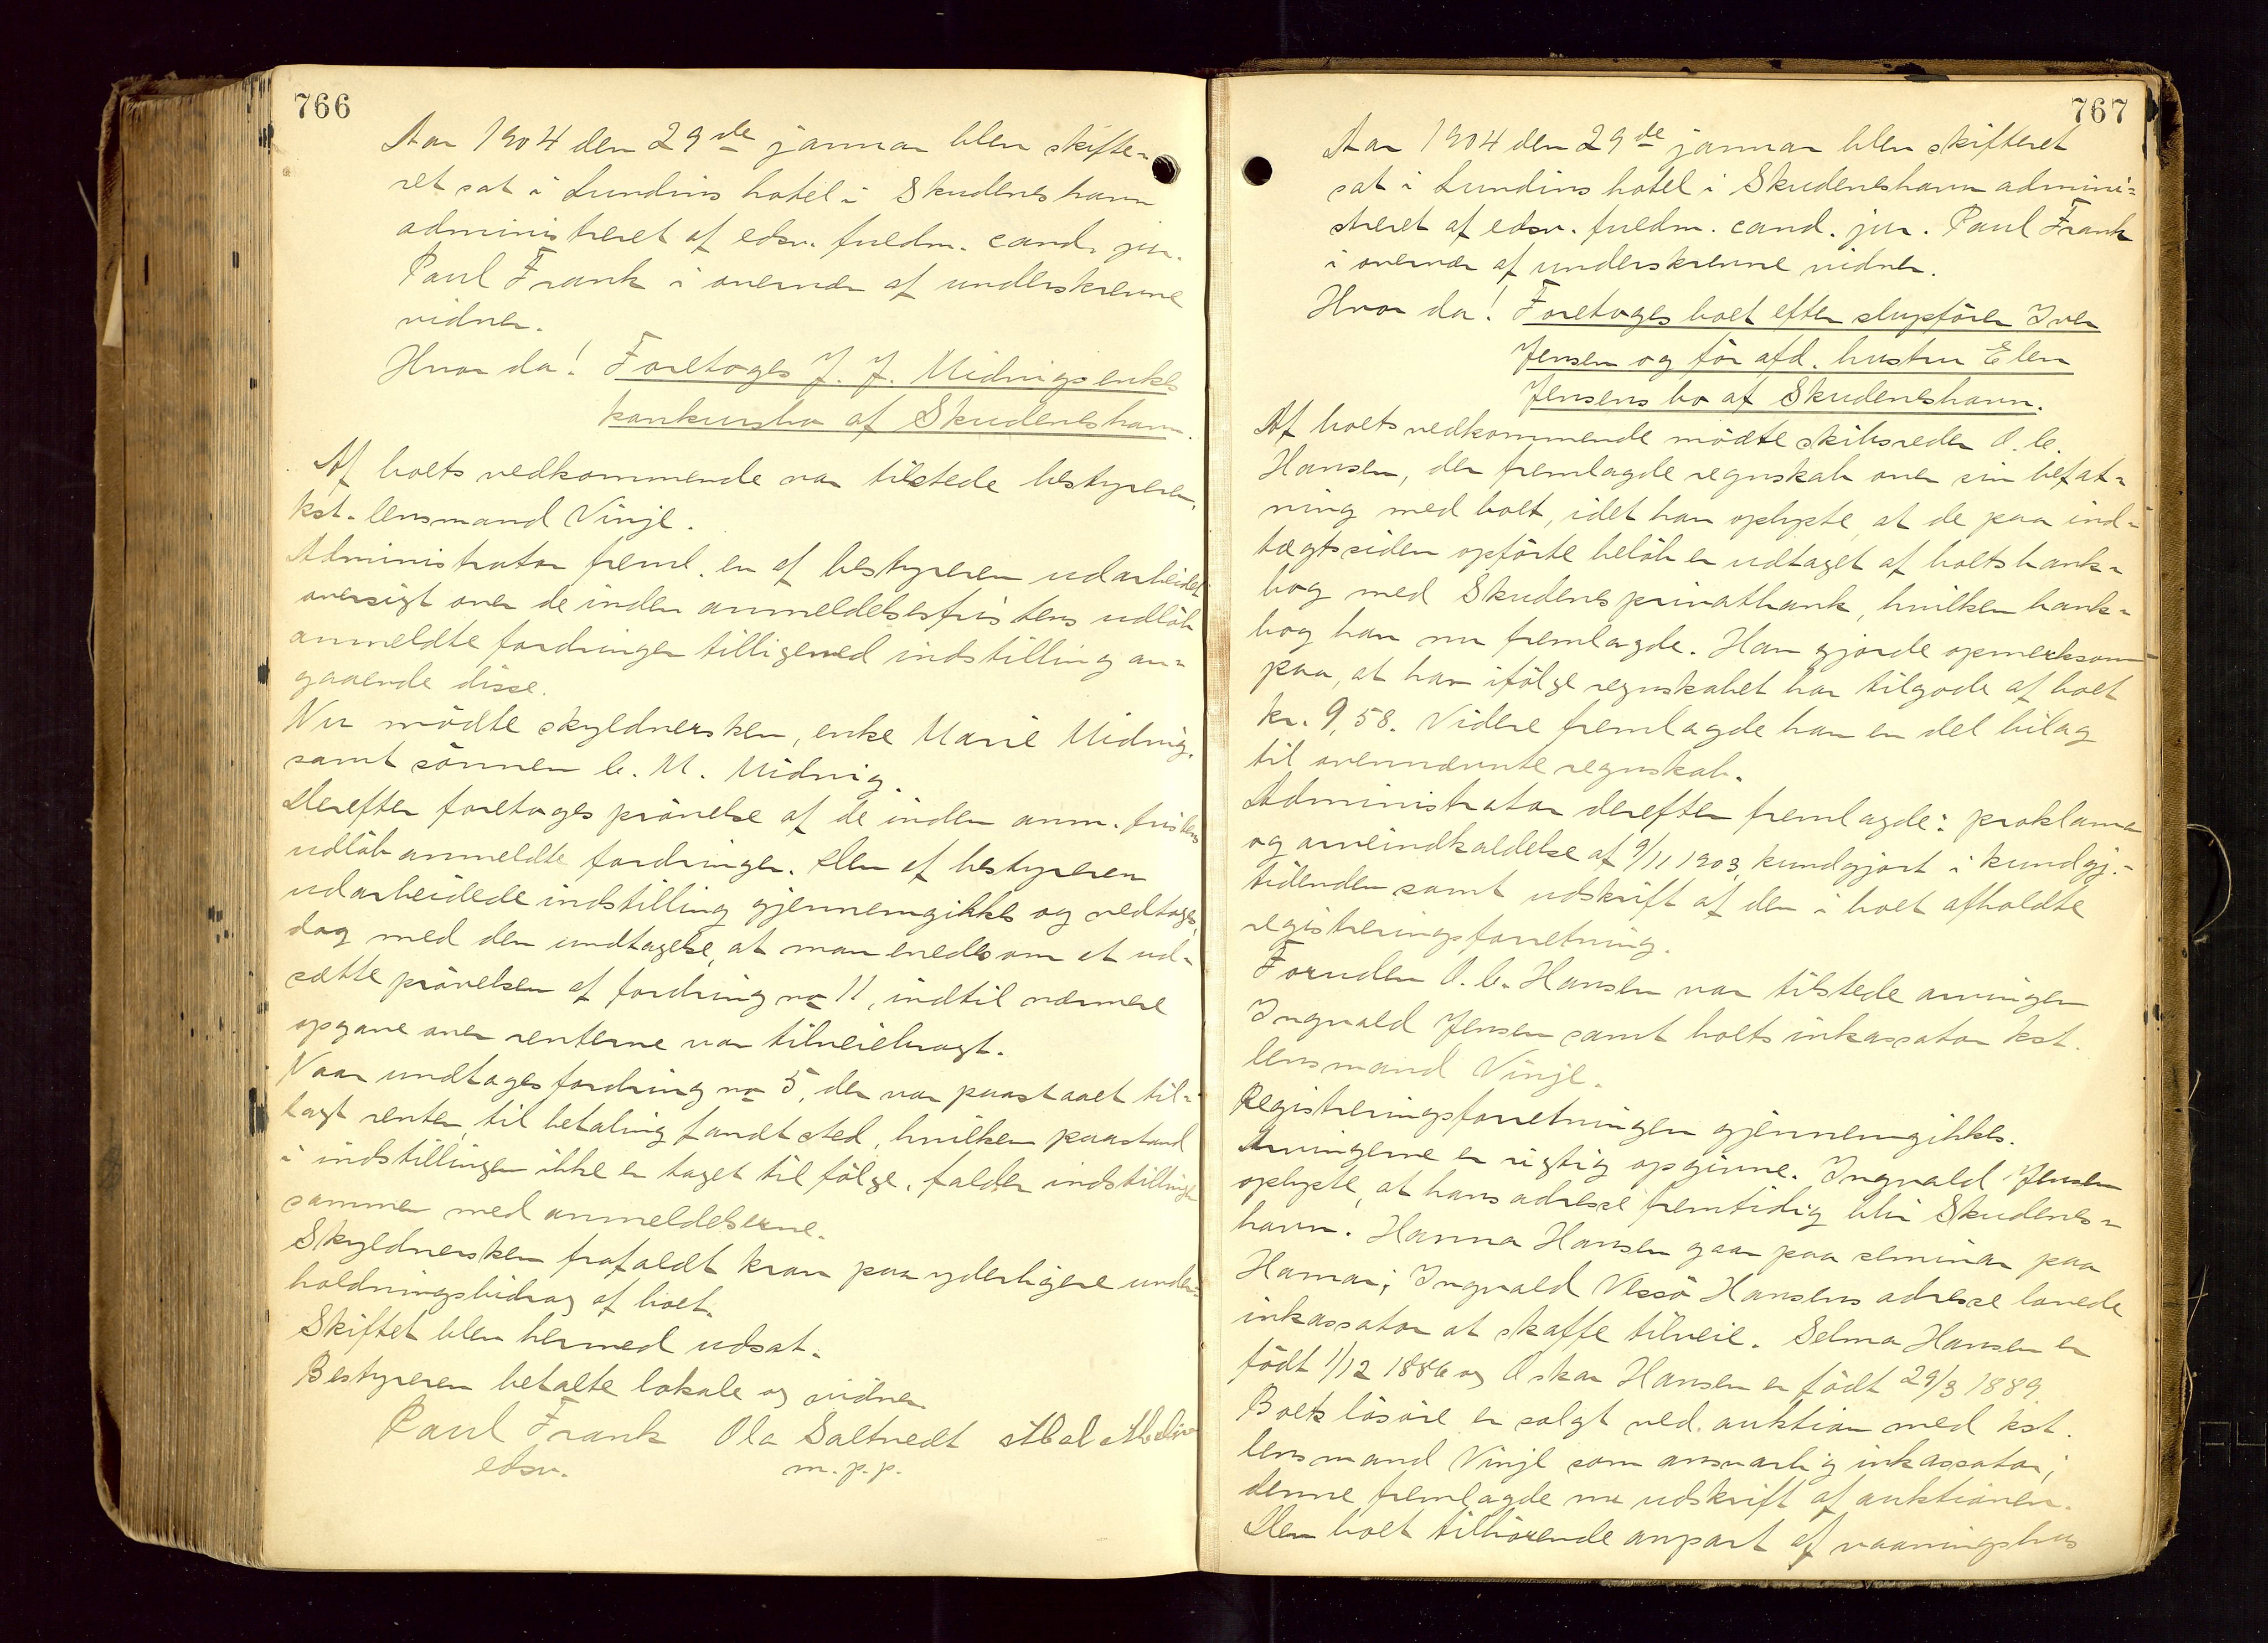 766
Aar 1904 den 29de januar blev skifte-
ret sat i Lundins hotel i Skudeneshavn
administreret af edsv. fuldm. cand. jur.
Paul Frank i overvær af underskrevne
vidner.
Hvor da! Foretoges J. J. Midvigs enkes
konkursbo af Skudeneshavn.
Af boets vedkommende var tilstede bestyreren,
kst. lensmand Vinje.
Administrator freml. en af bestyreren udarbeidet
oversigt over de inden anmeldelsesfristens udløb
anmeldte fordringer tilligemed indstilling an-
gaaende disse.
Nu mødte skyldnersken, enke Marie Midvig,
samt sønnen C. M. Midvig.
Derefter foretoges prøvelse af de inden anm. fristens
udløb anmeldte fordringer. Den af bestyreren
udarbeidede indstilling gjennemgikkes og vedtoges,
dog med den undtagelse, at man enedes om at ud-
sætte prøvelsen af fordring no 11, indtil nærmere
opgave over renterne var tilveiebragt.
Naar undtages fordring no 5, der var paastaaet til-
lagt renter, til betaling fandt sted, hvilken paastand
i indstillingen ikke er taget til følge, falder indstillingen
sammen med anmeldelserne.
Skyldnersken frafaldt krav paa yderligere under-
holdningsbidrag af boet.
Skiftet blev hermed udsat.
Bestyreren betalte lokale og vidner
Paul Frank Ola Saltvedt Abel
edsv. m. p. p.
767
Aar 1904 den 29de januar blev skifteret
sat i Lundins hotel i Skudeneshavn admini-
streret af edsv. fuldm. cand. jur. Paul Frank
i overvær af underskrevne vidner.
Hvor da! Foretoges boet efter slupfører Iver
Jensen og før afd. hustru Elen
Jensens bo af Skudeneshavn.
Af boets vedkommende mødte skibsreder O. C.
Hansen, der fremlagde regnskab over sin befat-
ning med boet, idet han oplyste, at de paa ind-
tægtssiden opførte beløb er udtaget af boets bank-
bog med Skudenes privatbank, hvilken bank-
bog han nu fremlagde. Han gjorde opmerksom
paa, at han ifølge regnskabet har tilgode af boet
kr. 9,58. Videre fremlagde han en del bilag
til ovennævnte regnskab.
Administrator derefter fremlagde: proklama
og arveindkaldelse af 9/11 1903, kundgjort i kundgj.-
tidenden samt udskrift af den i boet afholdte
registreringsforretning.
Foruden O. C. Hansen var tilstede arvingen
Ingvald Jensen samt boets inkassator kst.
lensmand Vinje.
Registreringsforretningen gjennemgikkes.
Arvingerne er rigtig opgivne. Ingvald Jensen
oplyste, at hans adresse fremtidig blir Skudenes-
havn. Hanna Hansen gaar paa seminar paa
Hamar; Ingvald Vessø Hansens adresse lovede
inkassator at skaffe tilveie. Selma Hansen er
født 1/12 1886 og Oskar Hansen er født 29/3 1889.
Boets løsøre er solgt ved auktion med kst.
lensmand Vinje som ansvarlig inkassator;
denne fremlagde nu udskrift af auktionen.
Den boet tilhørende anpart af vaaningshus